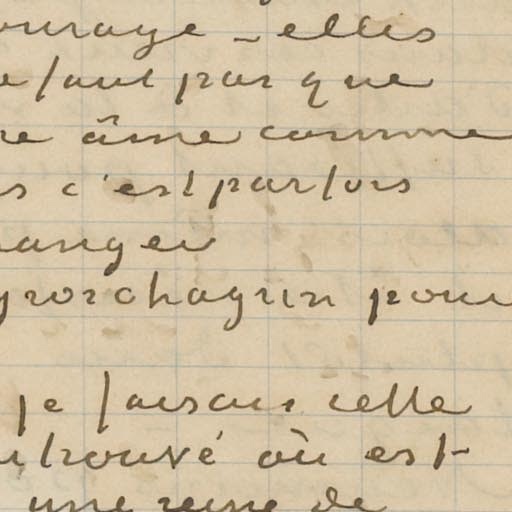 ourage - elles
faut pas que
re âme comme
s c'est parfois
anger
gros chagrin pour
je faisais cette
trouvé où est
une reine de